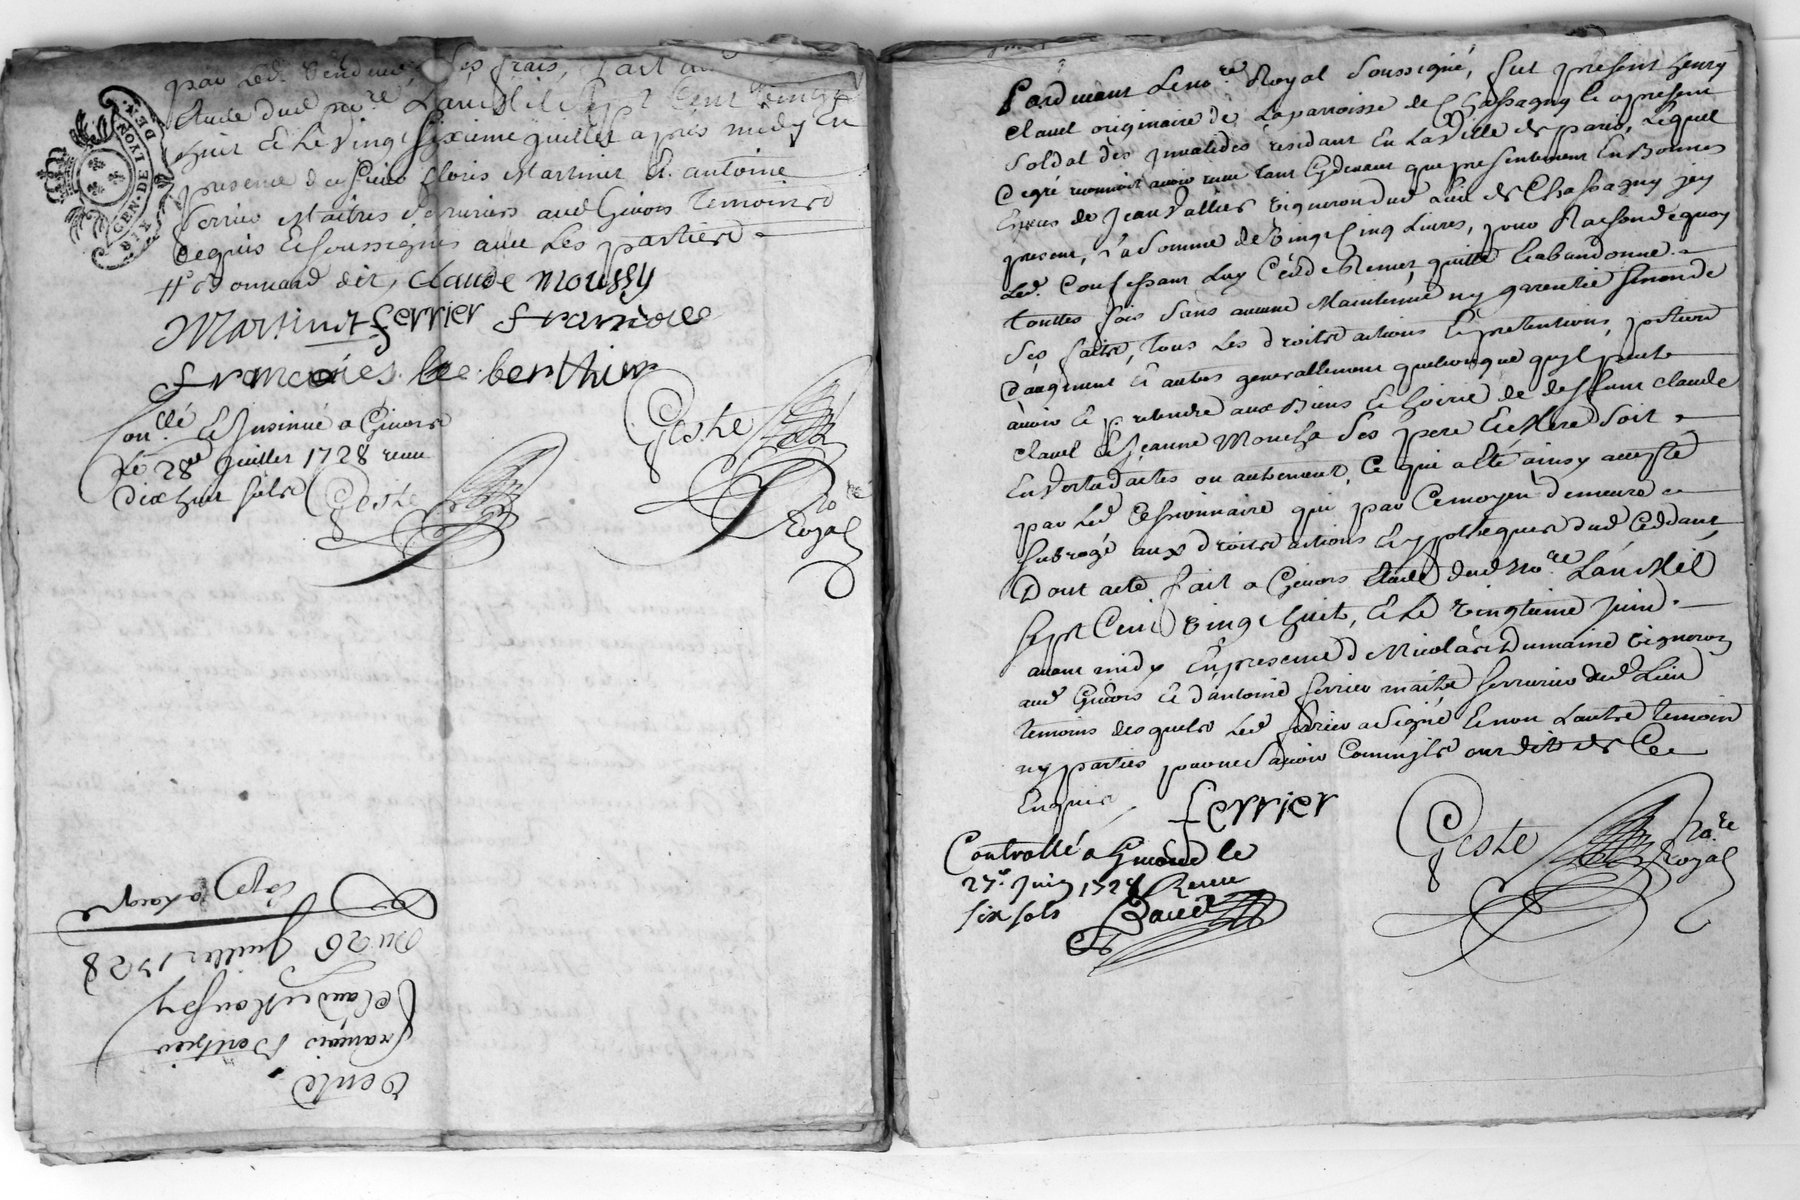 par led. vendeur, ses frais, fait
étude dud no.re Lan Mil sept cent vingt
huit & le vingt sixieme juillet apres midy En
presence de sieurs floris Martinit & antoine
ferrier Maitres serruriers aud Givors temoins
requis & soussignés avec les parties
donnard dit, claude moussy
Martinit ferrier
francoiés berthier
Con.llé & Insinué a Givors
Le 28e juillet 1728 receu
dix huit sols Geste
Geste no.re Royal
GEN. DE LYON
Vente
françois Berthier
Claude Moussy
du 26 juillet 1728
Pardevant le no.re Royal soussigné, fut present henry
clavel originaire de La parroisse de Chassagny a present
soldat des invalides residant En La Ville de paris, Lequel
degré reconnoit avoir receu tant cydevant que presentement En Bonnes
Especes de Jean Vallier vigneron dud Lieu de Chassagny icy
present, La somme de vingt Cinq Livres, pour Raison dequoy
Led. Confessant Luy Cede Remet, quitte & abandonne
touttes fois sans aucune Maintenue ny garentie sinon de
ses faits, tous Les droits actions & pretentions, portion
d'augment & autres generallement quelconque qu'il peut
avoir & pretendre aux Biens & hoirie de deffunt claude
clavel & Jeanne Moucha ses pere & Mere soit
En Vertu dactes ou autrement, Ce qui a été ainsy accepté
par Led Cessionnaire qui par Ce moyen demeure
subrogé aux droits actions & ypotheques dud Ceddant
Dont acte fait a Givors étude dud No.re Lan Mil
sept Cent vingt huit, & Le vingtieme Juin
avant midy En presence de Nicolas Dumaine vigneron
aud Givors & d'antoine ferrier maitre serrurier dud Lieu
temoins desquels Led ferrier a signé & non Lautre temoin
ny parties pour ne sçavoir Comm'ils ont dit de Ce
Enquis
ferrier
Geste No.re Royal
Controllé a Givors le
27e Juin 1728 Receu
six sols